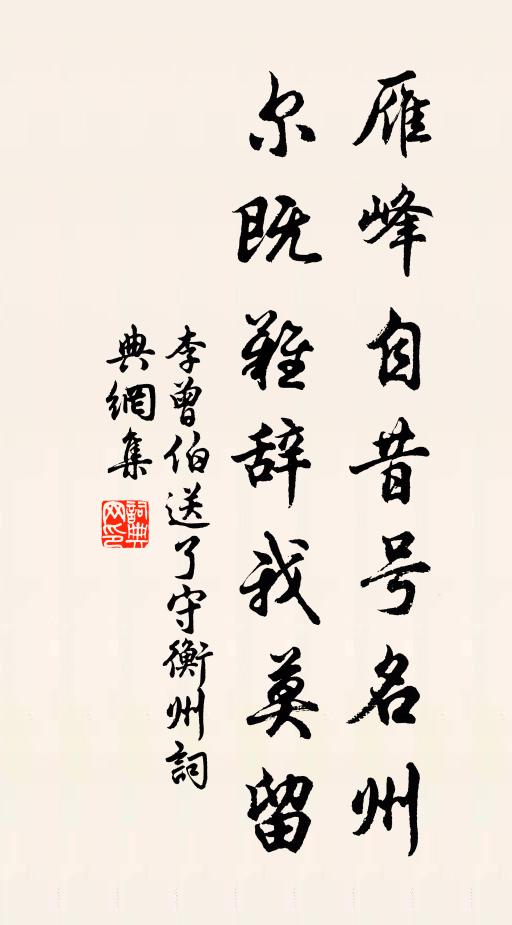 雁峰自昔号名州
尔既難辞我莫留
李曾伯送了守衡州詞
典網集
詞典网印